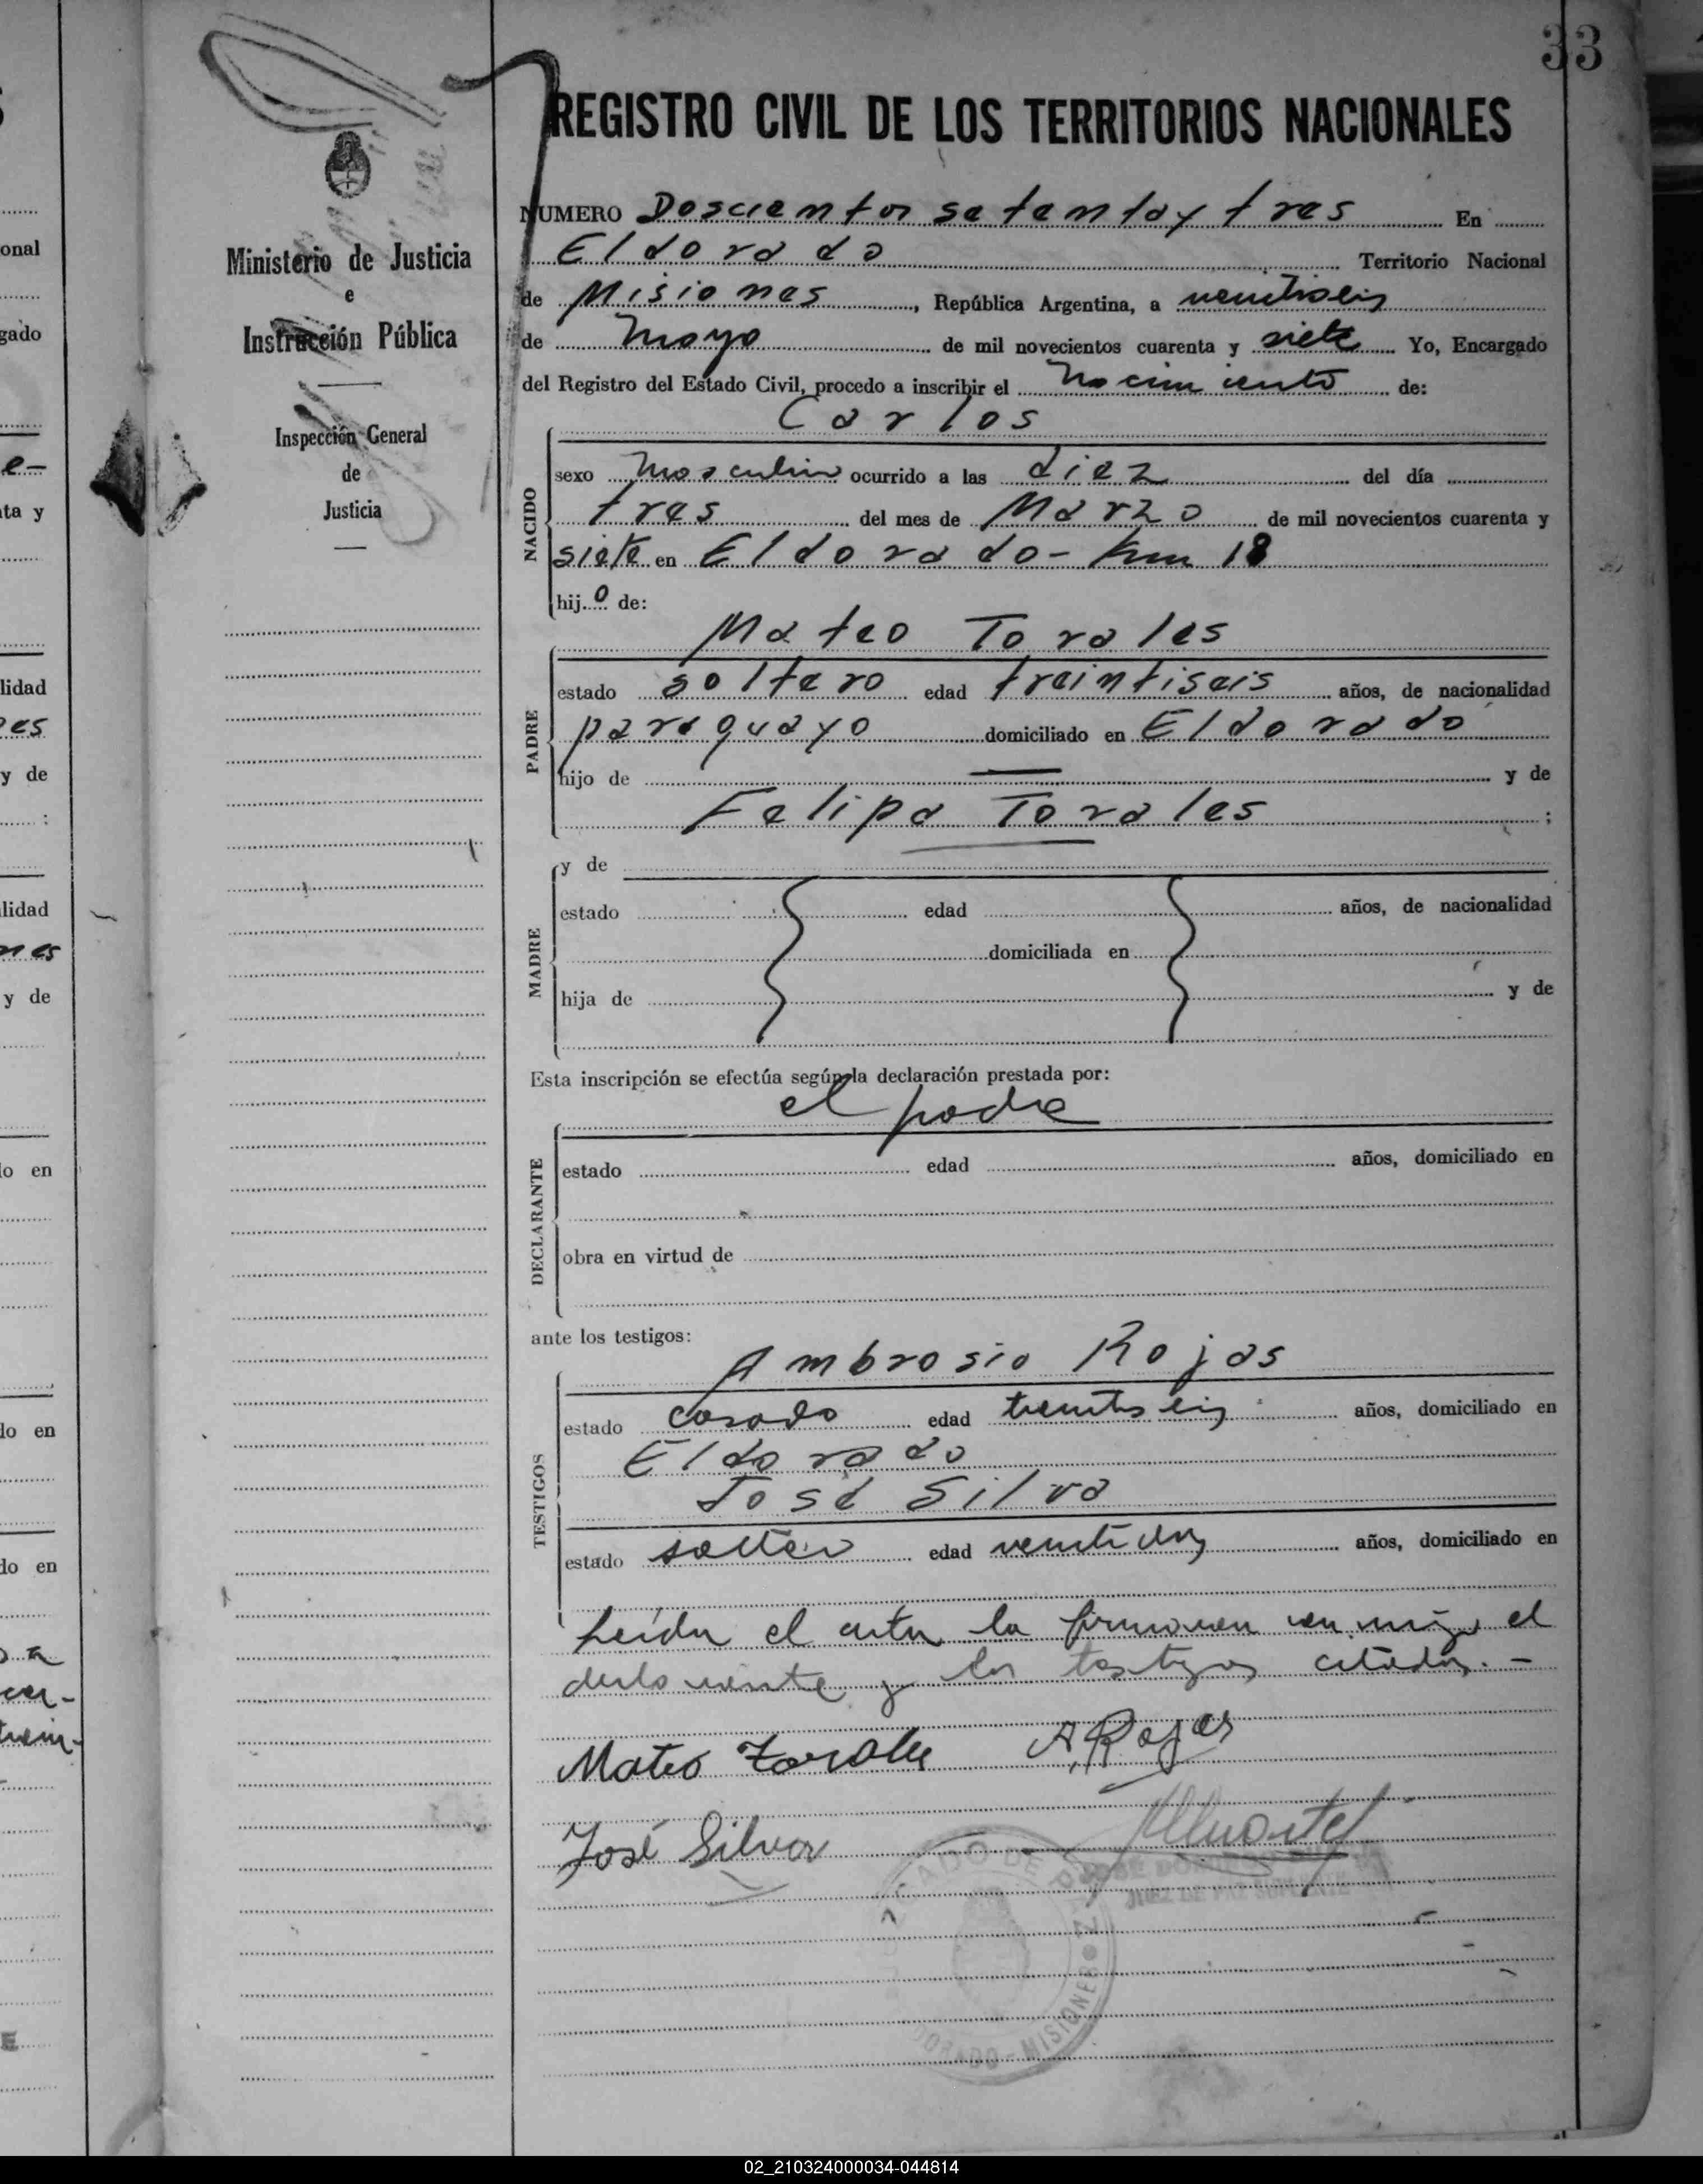 33
REGISTRO CIVIL DE LOS TERRITORIOS NACIONALES
Ministerio de Justicia
e
Instrucción Pública
Inspección General
de
Justicia
NUMERO Doscientos setenta y tres En
Eldorado Territorio Nacional
de Misiones, República Argentina, a veintiseis
de Mayo de mil novecientos cuarenta y siete Yo, Encargado
del Registro del Estado Civil, procedo a inscribir el nacimiento de:
Carlos
NACIDO
sexo masculino ocurrido a las diez del día
tres del mes de Marzo de mil novecientos cuarenta y
siete en Eldorado - Km 18
hijo de:
Mateo Torales
PADRE
estado soltero edad treintiseis años, de nacionalidad
paraguayo domiciliado en Eldorado
hijo de — y de
Felipa Torales ;
MADRE
y de
estado edad años, de nacionalidad
domiciliada en
hija de y de
Esta inscripción se efectúa según la declaración prestada por:
el padre
DECLARANTE
estado edad años, domiciliado en
obra en virtud de
ante los testigos:
Ambrosio Rojas
TESTIGOS
estado casado edad treintiseis años, domiciliado en
Eldorado
José Silva
estado soltero edad veintidos años, domiciliado en
Leída el acta la firmaron conmigo el
declarante y los testigos citados. -
Mateo Torales A. Rojas
José Silva
JUEZ DE PAZ SUPLENTE
DORADO - MISIONES
onal
gado
e-
ta y
lidad
es
y de
lidad
nes
y de
o en
lo en
do en
02_210324000034-044814